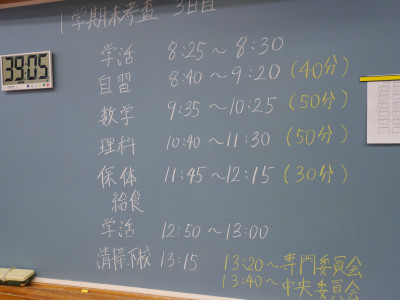 1学期末考査 3日目
39:05
学活 8:25～8:30
自習 8:40～9:20 (40分)
数学 9:35～10:25 (50分)
理科 10:40～11:30 (50分)
保体 11:45～12:15 (30分)
給食
学活 12:50～13:00
清掃下校 13:15
13:20～専門委員会
13:40～中央委員会